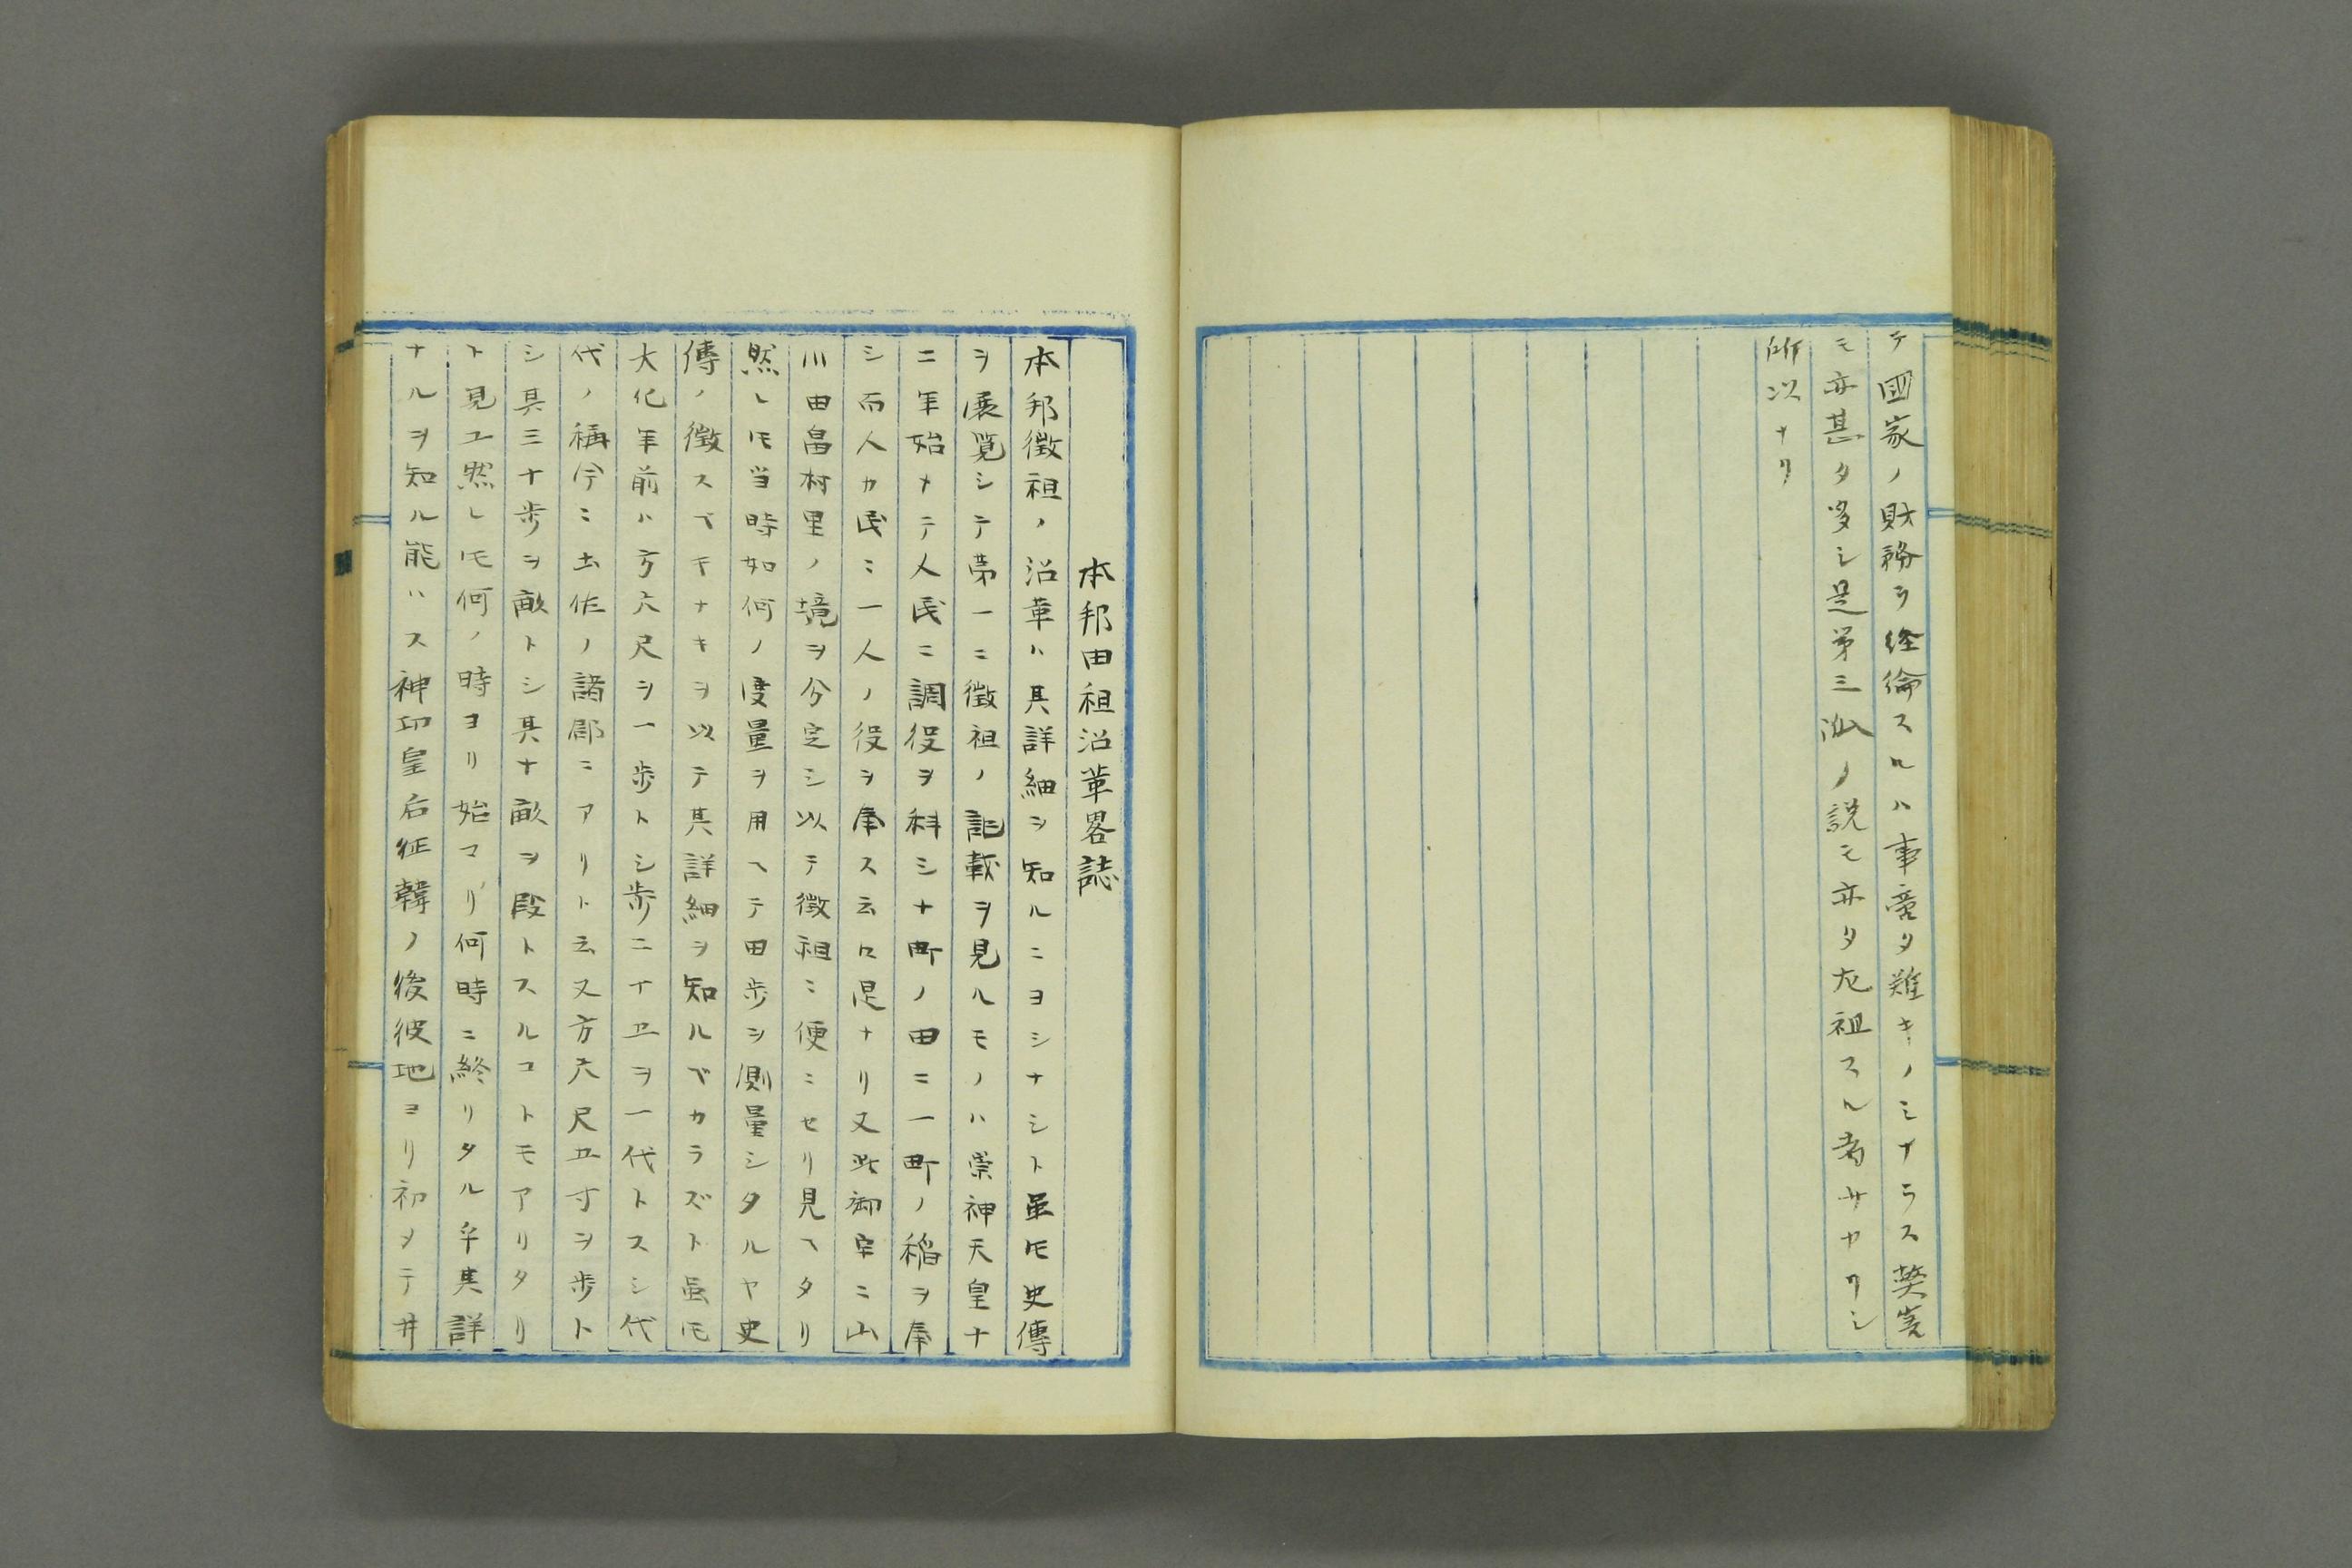 テ國家ノ財務ヲ経倫スルハ事啻タ難キノミナラス獘害
モ亦甚タ多シ是第三派ノ説モ亦タ左祖スル者サヤクシ
所以ナリ
本邦田租沿革畧誌
本邦徴祖ノ沿革ハ其詳細ヲ知ルニヨシナシト虽𪜈史傳
ヲ展覧シテ第一ニ徴祖ノ記載ヲ見ルモノハ崇神天皇十
二年始メテ人民ニ調役ヲ科シ十町ノ田ニ一町ノ稲ヲ奉
シ而人カ民ニ一人ノ役ヲ奉ス云々是ナリ又此御宇ニ山
川田畠村里ノ境ヲ分定シ以テ徴祖ニ便ニセリ見ヘタリ
然レ𪜈当時如何ノ度量ヲ用ヘテ田歩ヲ測量シタルヤ史
傳ノ徴スベキナキヲ以テ其詳細ヲ知ルベカラズト虽𪜈
大化年前ハ方六尺ヲ一歩トシ歩二十五ヲ一代トスシ代
代ノ稱今ニ土佐ノ諸郡ニアリト云又方六尺五寸ヲ歩ト
シ具三十歩ヲ畝トシ其十畝ヲ段トスルコトモアリタリ
ト見ユ然レ𪜈何ノ時ヨリ始マリ何時ニ終リタル乎其詳
ナルヲ知ル能ハス神功皇后征韓ノ後彼地ヨリ初メテ井